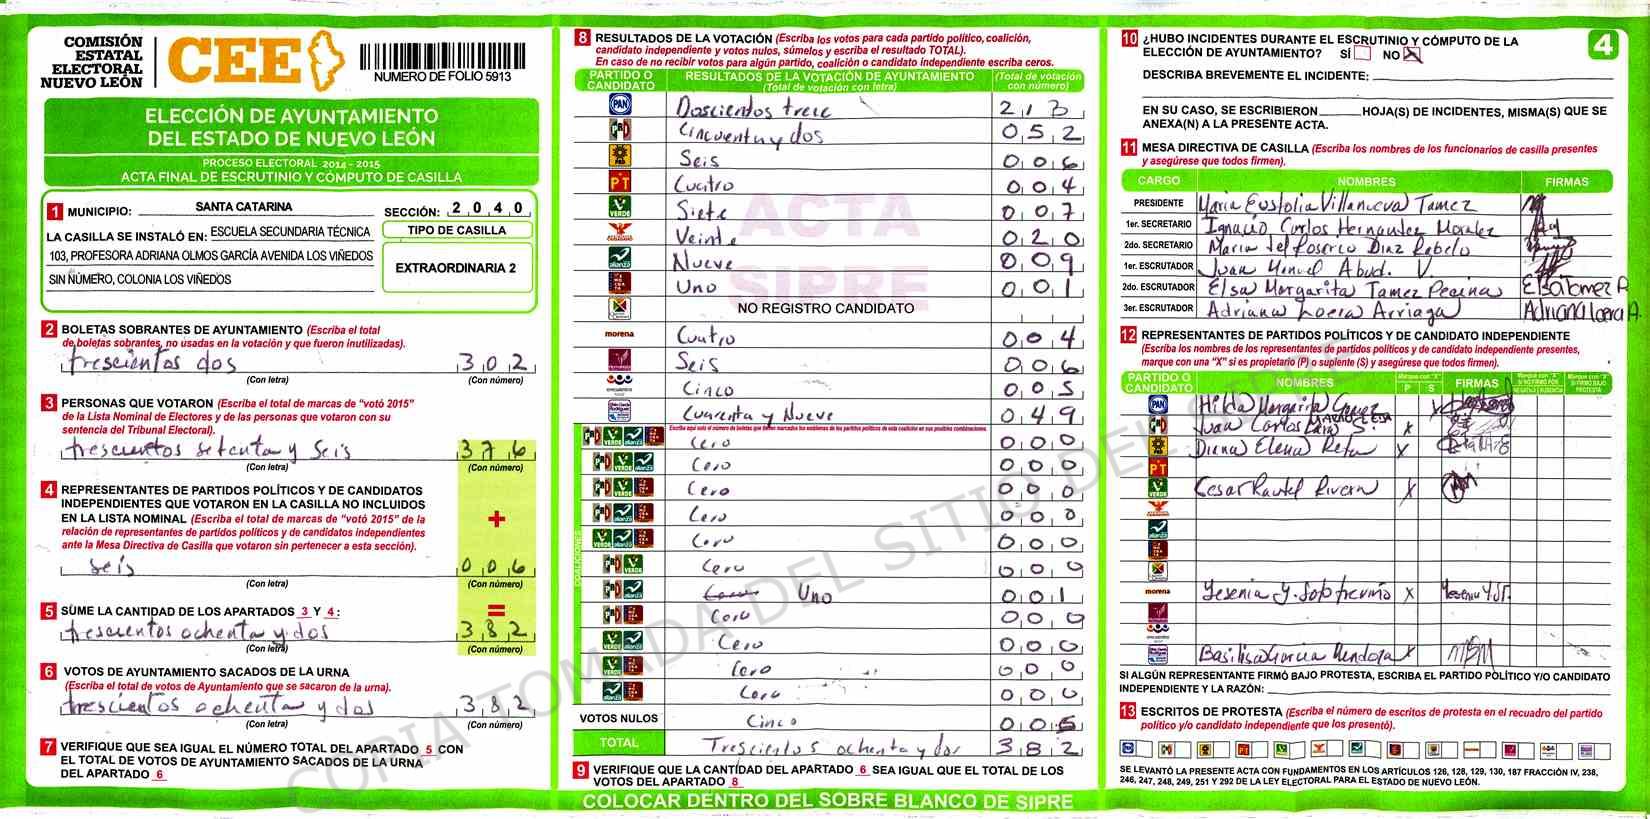 COMISIÓN
ESTATAL
ELECTORAL
NUEVO LEÓN
CEE
NUMERO DE FOLIO 5913
ELECCIÓN DE AYUNTAMIENTO
DEL ESTADO DE NUEVO LEÓN
PROCESO ELECTORAL 2014 - 2015
ACTA FINAL DE ESCRUTINIO Y CÓMPUTO DE CASILLA
1 MUNICIPIO: SANTA CATARINA SECCIÓN: 2 0 4 0
LA CASILLA SE INSTALÓ EN: ESCUELA SECUNDARIA TÉCNICA
103, PROFESORA ADRIANA OLMOS GARCÍA AVENIDA LOS VIÑEDOS
SIN NÚMERO, COLONIA LOS VIÑEDOS
TIPO DE CASILLA
EXTRAORDINARIA 2
2 BOLETAS SOBRANTES DE AYUNTAMIENTO (Escriba el total
de boletas sobrantes, no usadas en la votación y que fueron inutilizadas).
trescientos dos 3 0 2
(Con letra) (Con número)
3 PERSONAS QUE VOTARON (Escriba el total de marcas de “votó 2015”
de la Lista Nominal de Electores y de las personas que votaron con su
sentencia del Tribunal Electoral).
trescientos setenta y seis 3 7 6
(Con letra) (Con número)
4 REPRESENTANTES DE PARTIDOS POLÍTICOS Y DE CANDIDATOS
INDEPENDIENTES QUE VOTARON EN LA CASILLA NO INCLUIDOS
EN LA LISTA NOMINAL (Escriba el total de marcas de “votó 2015” de la
relación de representantes de partidos políticos y de candidatos independientes
ante la Mesa Directiva de Casilla que votaron sin pertenecer a esta sección).
+
seis 0 0 6
(Con letra) (Con número)
5 SUME LA CANTIDAD DE LOS APARTADOS 3 Y 4:
=
trescientos ochenta y dos 3 8 2
(Con letra) (Con número)
6 VOTOS DE AYUNTAMIENTO SACADOS DE LA URNA
(Escriba el total de votos de Ayuntamiento que se sacaron de la urna).
trescientos ochenta y dos 3 8 2
(Con letra) (Con número)
7 VERIFIQUE QUE SEA IGUAL EL NÚMERO TOTAL DEL APARTADO 5 CON
EL TOTAL DE VOTOS DE AYUNTAMIENTO SACADOS DE LA URNA
DEL APARTADO 6
8 RESULTADOS DE LA VOTACIÓN (Escriba los votos para cada partido político, coalición,
candidato independiente y votos nulos, súmelos y escriba el resultado TOTAL).
En caso de no recibir votos para algún partido, coalición o candidato independiente escriba ceros.
PARTIDO O CANDIDATO
RESULTADOS DE LA VOTACIÓN DE AYUNTAMIENTO
(Total de votación con letra)
(Total de votación con número)
PAN Doscientos trece 2 1 3
PRI Cincuenta y dos 0 5 2
PRD Seis 0 0 6
PT Cuatro 0 0 4
VERDE Siete 0 0 7
Veinte 0 2 0
alianza Nueve 0 0 9
Uno 0 0 1
NO REGISTRO CANDIDATO
morena Cuatro 0 0 4
Seis 0 0 6
Cinco 0 0 5
Cuarenta y Nueve 0 4 9
ACTA
SIPRE
COALICIONES
Cero 0 0 0
Cero 0 0 0
Cero 0 0 0
Cero 0 0 0
Cero 0 0 0
Cero 0 0 0
Uno 0 0 1
Cero 0 0 0
Cero 0 0 0
Cero 0 0 0
Cero 0 0 0
VOTOS NULOS Cinco 0 0 5
TOTAL Trescientos ochenta y dos 3 8 2
9 VERIFIQUE QUE LA CANTIDAD DEL APARTADO 6 SEA IGUAL QUE EL TOTAL DE LOS
VOTOS DEL APARTADO 8
COLOCAR DENTRO DEL SOBRE BLANCO DE SIPRE
10 ¿HUBO INCIDENTES DURANTE EL ESCRUTINIO Y CÓMPUTO DE LA
ELECCIÓN DE AYUNTAMIENTO? SÍ NO X
4
DESCRIBA BREVEMENTE EL INCIDENTE:
EN SU CASO, SE ESCRIBIERON HOJA(S) DE INCIDENTES, MISMA(S) QUE SE
ANEXA(N) A LA PRESENTE ACTA.
11 MESA DIRECTIVA DE CASILLA (Escriba los nombres de los funcionarios de casilla presentes
y asegúrese que todos firmen).
CARGO NOMBRES FIRMAS
PRESIDENTE Maria Eustolia Villanueva Tamez
1er. SECRETARIO Ignacio Carlos Hernandez Morales
2do. SECRETARIO Maria del Rosario Diaz Rebelo
1er. ESCRUTADOR Juan Manuel Abud. V.
2do. ESCRUTADOR Elsa Margarita Tamez Pecina Elsa Tamez P.
3er. ESCRUTADOR Adriana Loera Arriaga Adriana Loera A.
12 REPRESENTANTES DE PARTIDOS POLÍTICOS Y DE CANDIDATO INDEPENDIENTE
(Escriba los nombres de los representantes de partidos políticos y de candidato independiente presentes,
marque con una “X” si es propietario (P) o suplente (S) y asegúrese que todos firmen).
PARTIDO O CANDIDATO NOMBRES P S FIRMAS
PAN Hilda Margarita Gomez X
Juan Carlos X
PRD Diana Elena Reta X
PT
VERDE Cesar Rautel Rivera X
morena Yesenia Y. Soto treviño X
Basilisa Garcia Mendoza X MBM
SI ALGÚN REPRESENTANTE FIRMÓ BAJO PROTESTA, ESCRIBA EL PARTIDO POLÍTICO Y/O CANDIDATO
INDEPENDIENTE Y LA RAZÓN:
13 ESCRITOS DE PROTESTA (Escriba el número de escritos de protesta en el recuadro del partido
político y/o candidato independiente que los presentó).
SE LEVANTÓ LA PRESENTE ACTA CON FUNDAMENTOS EN LOS ARTÍCULOS 126, 128, 129, 130, 187 FRACCIÓN IV, 238,
246, 247, 248, 249, 251 Y 292 DE LA LEY ELECTORAL PARA EL ESTADO DE NUEVO LEÓN.
COPIA TOMADA DEL SITIO DEL SIPRE